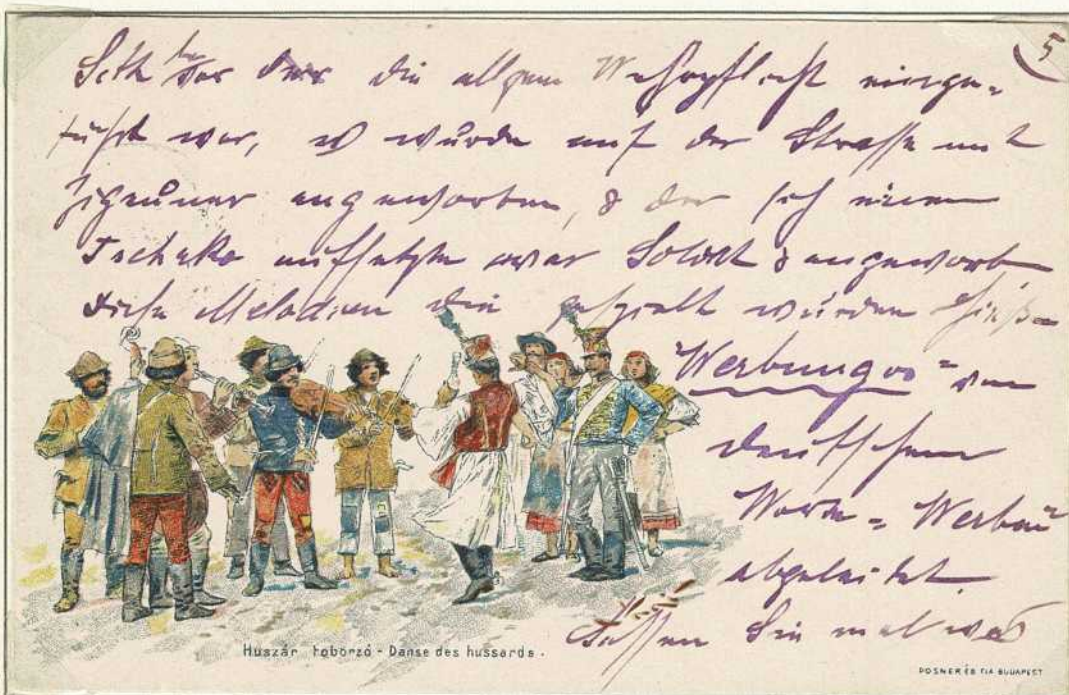 5
bevor die allgem Wehrpflicht einge=
führt war, so wurde auf der Strasse mit
Zigeuner angeworben, & der sich einen
Tschako aufsetzte war Soldat & angeworb
diese Melodien die gespielt wurden hießen
"Werbungos" vom
deutschem
Worte = Werben
abgeleitet.
Sie mal was
Huszár toborzó - Danse des hussards.
POSNER ÉS FIA BUDAPEST